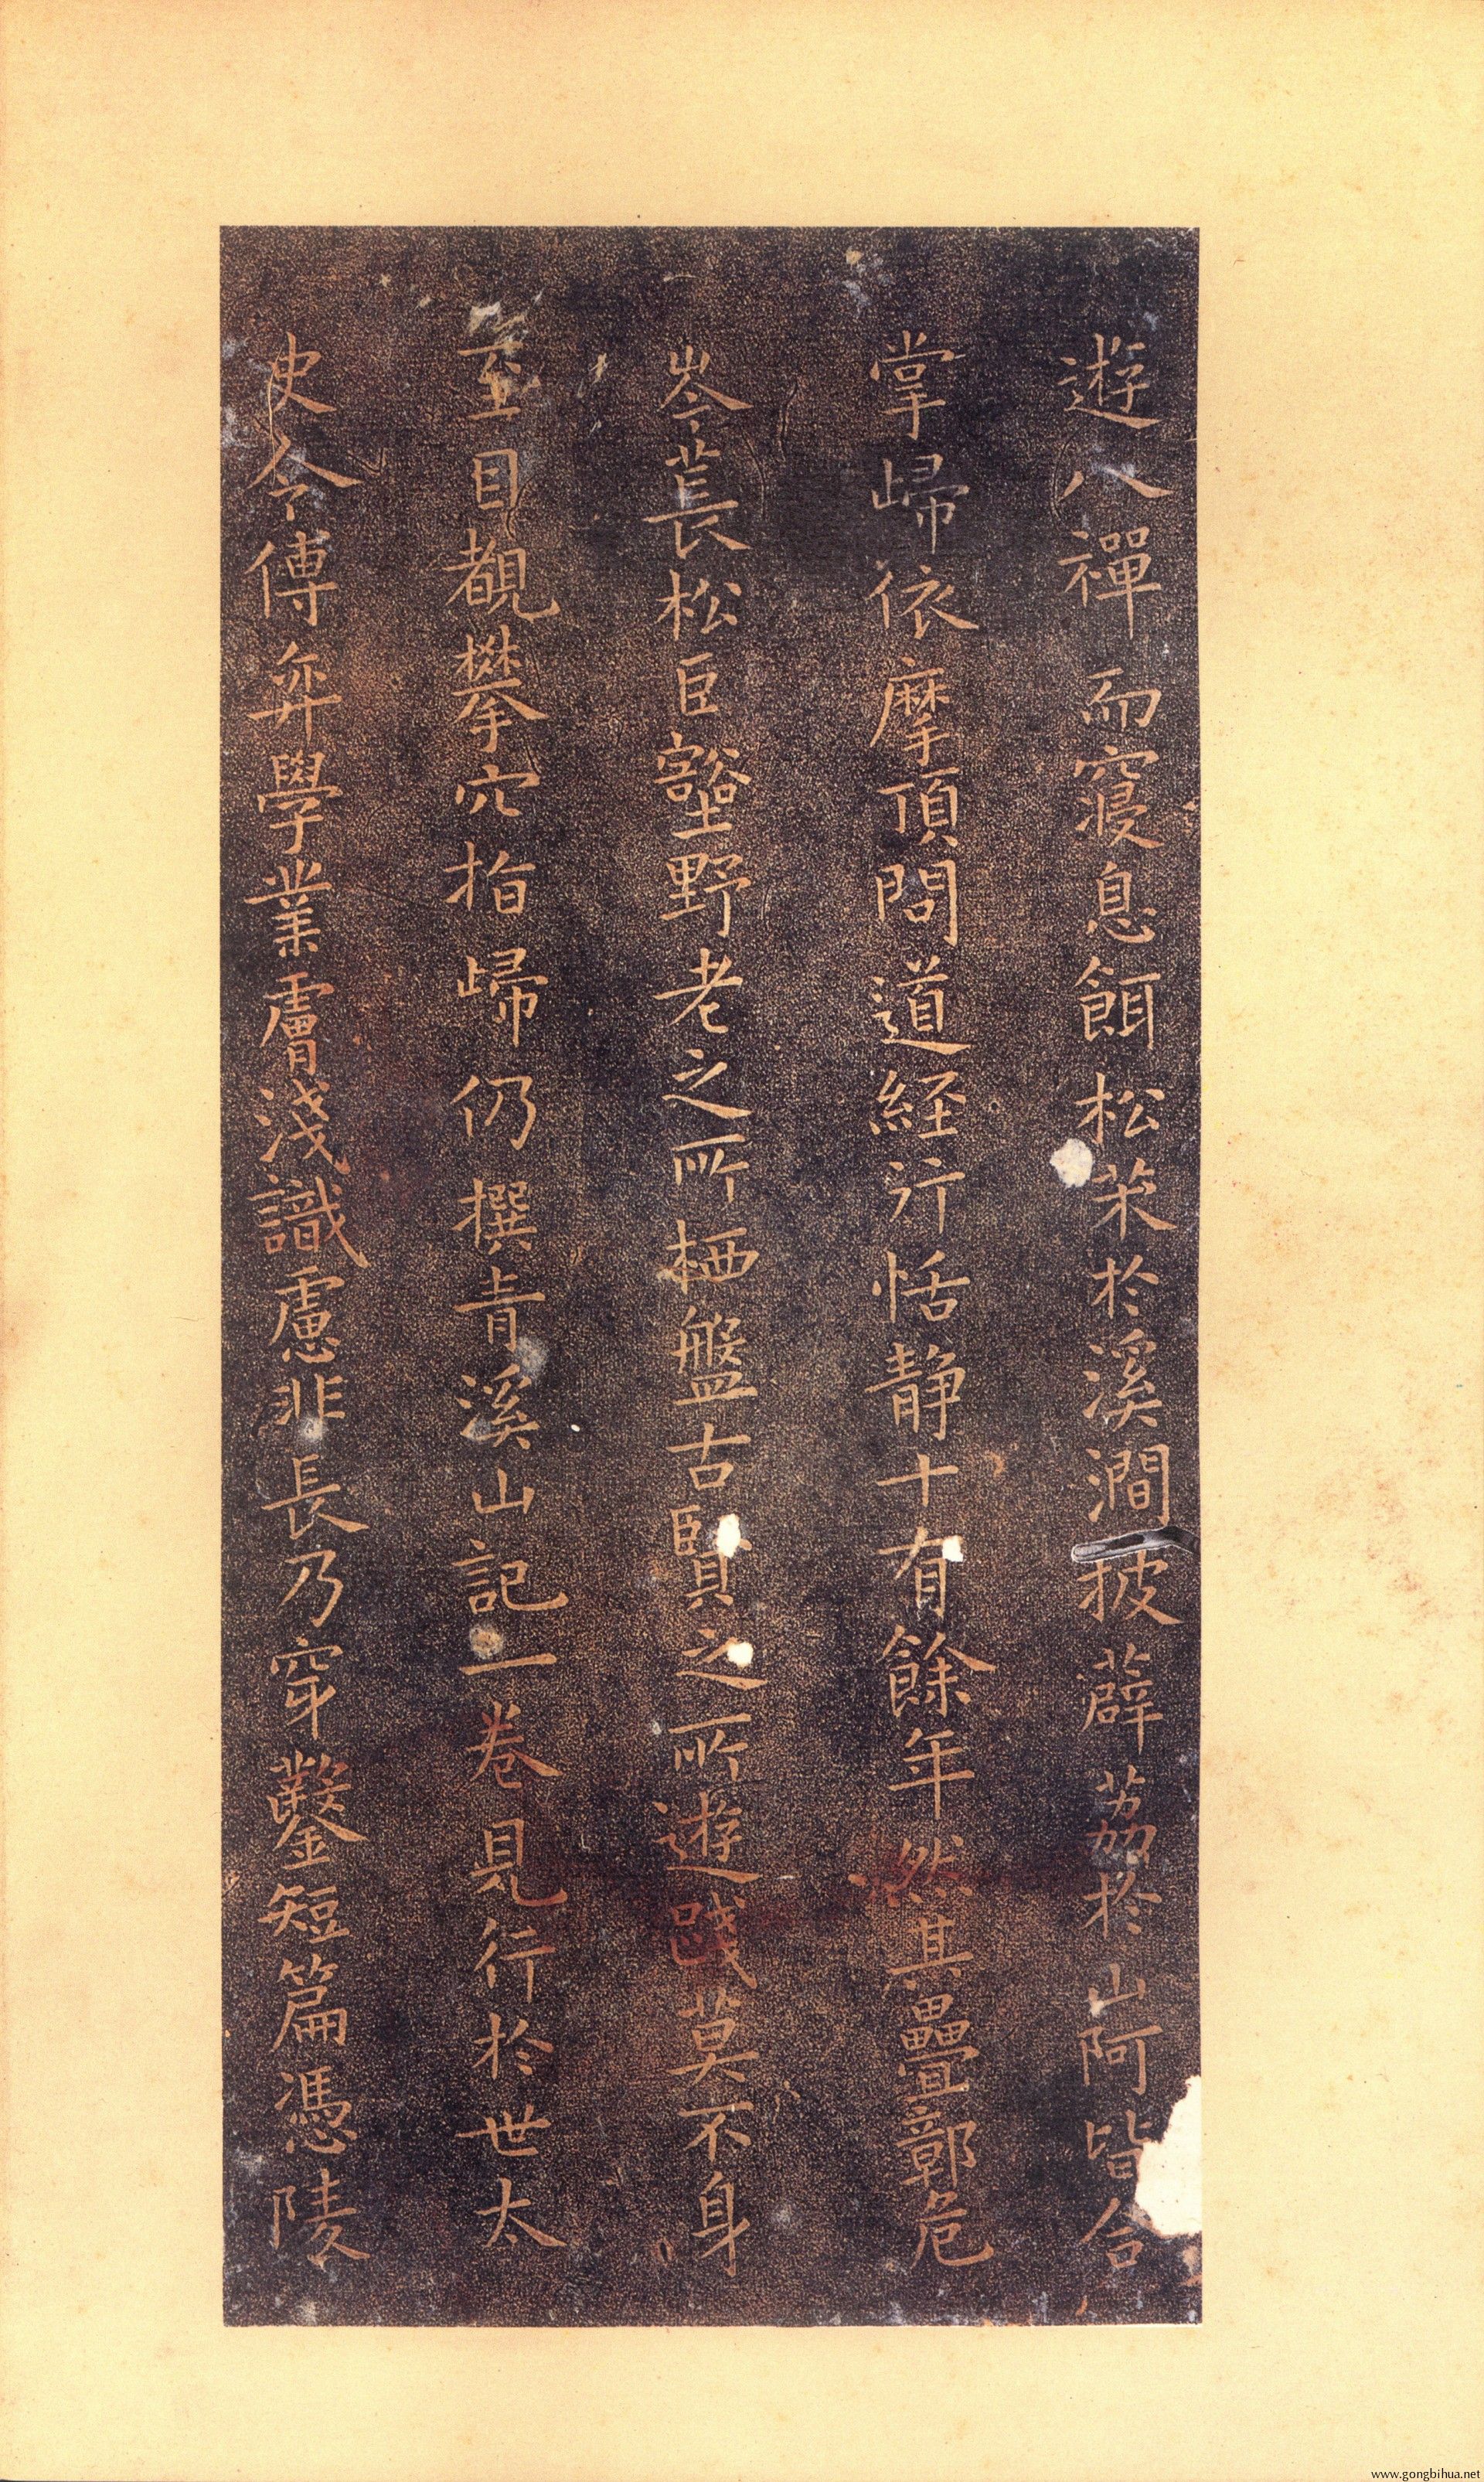 遊八禪而寢息餌松朮於溪澗披薜荔於山阿皆合
掌歸依摩頂問道經行恬静十有餘年然其疊鄣危
岑萇松巨壑野老之所栖盤古賢之所遊踐莫不身
至目覩攀穴指歸仍撰青溪山記一卷見行於世太
史令傅弈學業膚淺識慮非長乃穿鑿短篇憑陵
www.gongbihua.net